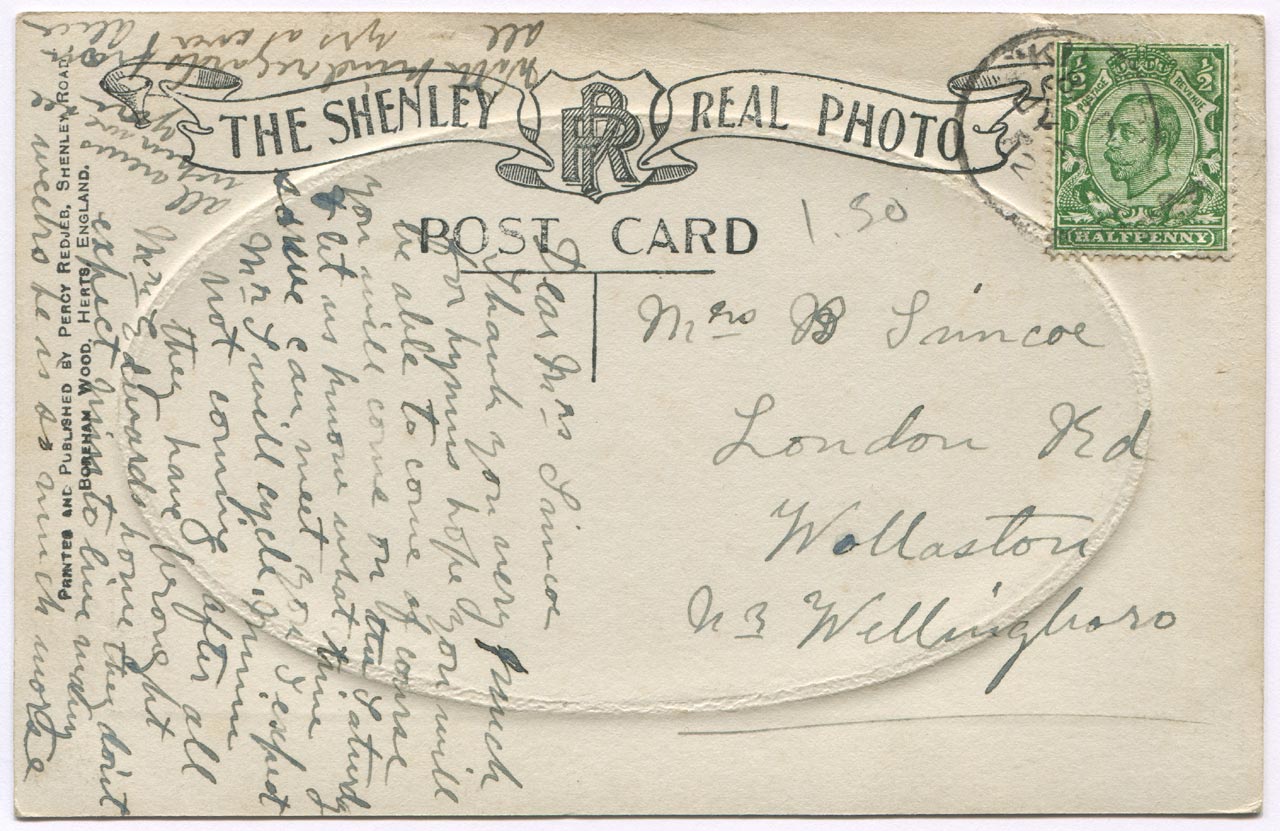 THE SHENLEY REAL PHOTO
PR
POST CARD
1.50
POSTAGE REVENUE
½ ½
HALFPENNY
Mrs B Simcoe
London Rd
Wollaston
Nr Wellingboro
Dear Mrs Simcoe
Thank you very much
for hymns hope you will
be able to come of course
you will come on the Saturday
& let us know what time
some can meet you I expect
Mr I will cycle
not coming after all
they have brought
Mr Edwards home they don't
expect him to live many
weeks he is so much worse
all
With kind regards from
all yrs
PRINTED AND PUBLISHED BY PERCY REDJEB, SHENLEY ROAD,
BOREHAM WOOD, HERTS, ENGLAND.